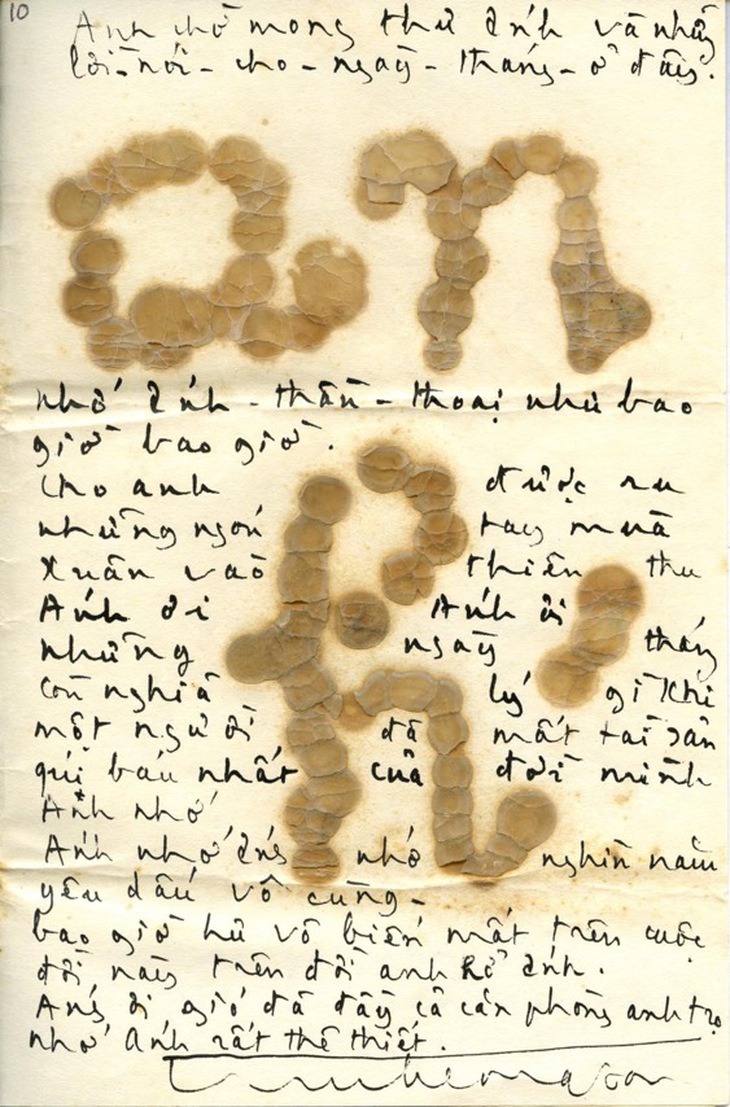 10
Anh chờ mong thư ánh và những
lời-nói-cho-ngày-tháng-ở đây.
an
nhớ ánh-thần-thoại như bao
giờ bao giờ.
Cho anh được ru
những ngón tay mùa
Xuân vào thiên thu
Ánh ơi Ánh ơi
những ngày tháng
còn nghĩa lý gì khi
một người đã mất tài sản
quí báu nhất của đời mình
Ánh nhớ
Ánh nhớ ánh nhớ nghìn năm
yêu dấu vô cùng-
bao giờ hư vô biến mất trên cuộc
đời này trên đời anh hở ánh.
Ánh ơi gió đã đầy cả căn phòng anh trọ
nhớ Ánh rất thê thiết.